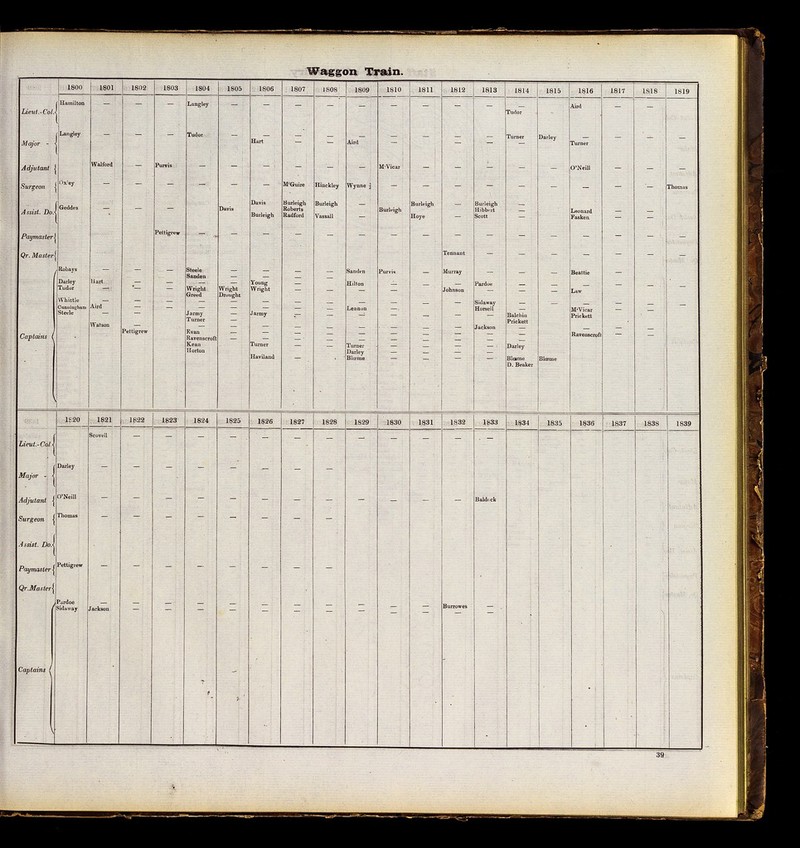 Waggon Train.
1800 1801 1802 1803 1804 1805 1806 1807 1808 1809 1810 1811 1812 1813 1814 1815 1816 1817 1818 1819
Lieut.-Col. Hamilton — — — Langley — — — — — — — — — — Aird — —
Tudor
Major - Langley — — — Tudor — — — — — — — — — Turner Darley — — — —
Hart — — Aird — — — — — Turner
Adjutant Walford — Purvis — — — — — — M'Vicar — — — — — O'Neill — — —
Surgeon Oxley — — — — — — M'Guire Hinckley Wynne — — — — — — — — — Thomas
Assist. Do. Geddes — — — Davis Davis Burleigh Burleigh — Burleigh Burleigh — Burleigh — Leonard — —
Burleigh Roberts Vassall — Hoye — Hibbert — Fasken — —
Radford Scott
Paymaster Pettigrew — — — — — — — — — — — — — — —
Qr. Master Tennant — — — — — —
Captains Robays — — — Steele — — — — Sanden Purvis — Murray — — — Beattie
Sanden — — — —
Darley Hart — — — — Young — — Hilton — — — Pardoe — — — — —
Tudor — — — Wright Wright Wright — — — — — Johnson — — — Law — —
Greed Drought
Whittle — — — — — — — — — — — — Sidaway — — — — —
Cunningham Aird — — — — — — — Lennon — — — Hersell — M'Vicar — —
Steele — — — Jarmy — Jarmy — — — — — — — Balchin Prickett
Turner Prickatt
Watson — — — — — — — — — — — Jackson — — — — —
Pettigrew — Evan — — — — — — — — — — — Ravenscroft — —
Ravenscroft
Kenn — Turner — — Turner — — — — Darley
Horton Darley — — — —
Haviland — Blœme — — — — Blœme Blœme
D. Beaker
1820 1821 1822 1823 1824 1825 1826 1827 1828 1829 1830 1831 1832 1833 1834 1835 1836 1837 1838 1839
Lieut.-Col. Scovell — — — — — — — — — — — —
Major - Darley — — — — — — — —
Adjutant O'Neill — — — — — — — — — — — — Baldock
Surgeon Thomas — — — — — — — —
Assist. Do.
Paymaster Pettigrew — — — — — — — —
Qr. Master
Captains Pardoe — — — — — — — — — — — Burrowes —
Sidaway Jackson — — — — — — — — — — — —
39